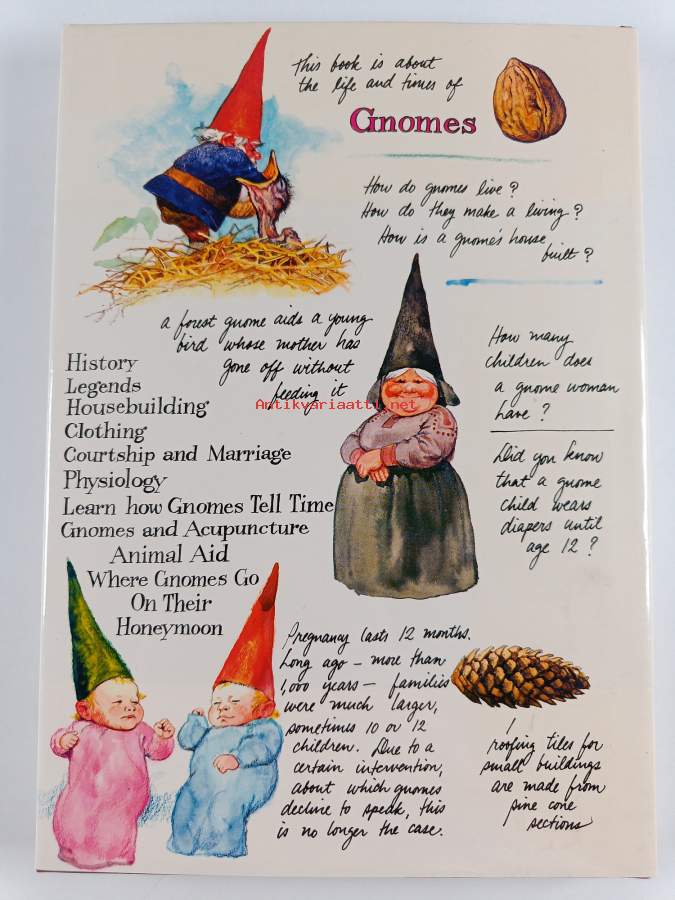 This book is about
the life and times of
Gnomes
How do gnomes live?
How do they make a living?
How is a gnome's house
built?
a forest gnome aids a young
bird whose mother has
gone off without
feeding it
Antikvariaatti.net
How many
children does
a gnome woman
have?
Did you know
that a gnome
child wears
diapers until
age 12?
History
Legends
Housebuilding
Clothing
Courtship and Marriage
Physiology
Learn how Gnomes Tell Time
Gnomes and Acupuncture
Animal Aid
Where Gnomes Go
On Their
Honeymoon
Pregnancy lasts 12 months.
Long ago – more than
1,000 years – families
were much larger,
sometimes 10 or 12
children. Due to a
certain intervention,
about which gnomes
decline to speak, this
is no longer the case.
roofing tiles for
small buildings
are made from
pine cone
sections